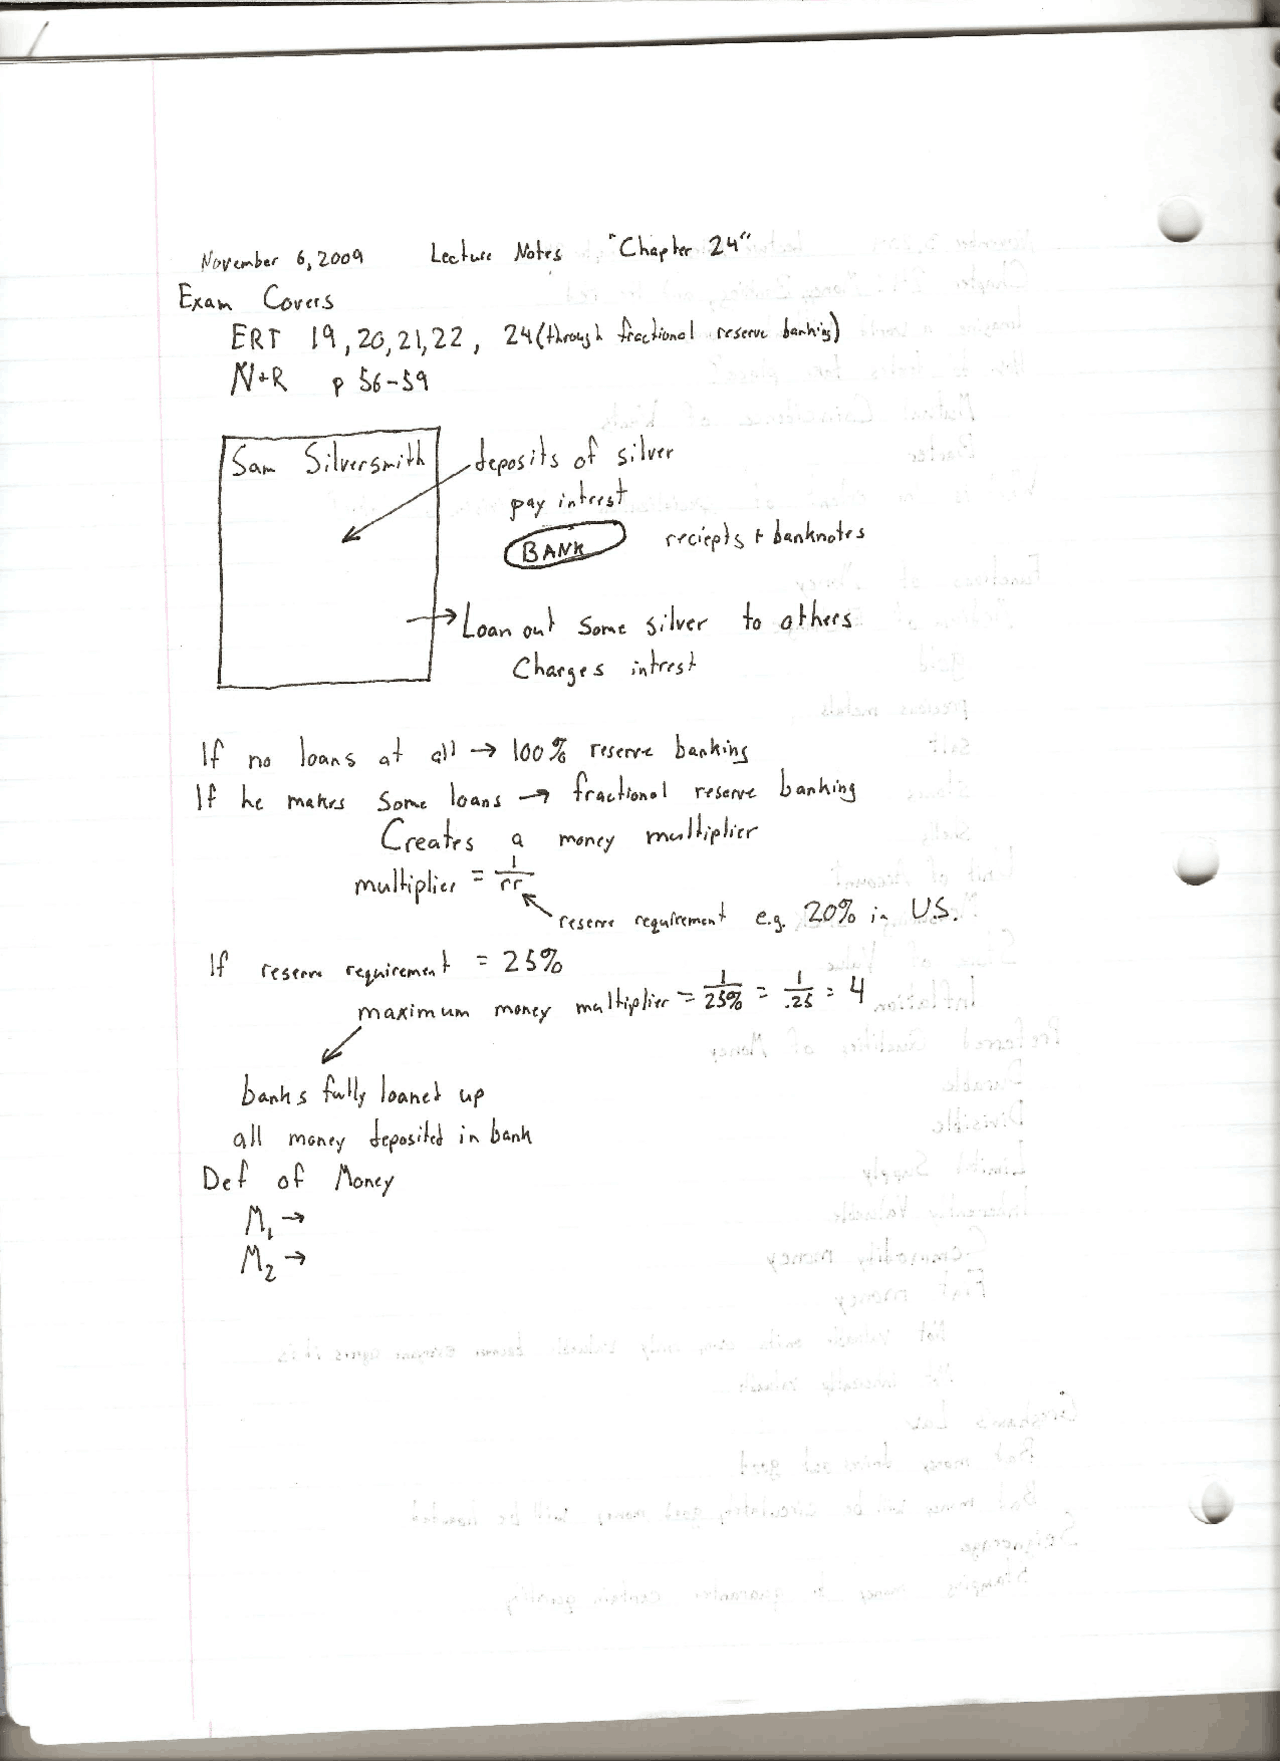 November 6, 2009 Lecture Notes "Chapter 24"
Exam Covers
ERT 19, 20, 21, 22, 24 (through fractional reserve banking)
N+R p 56-59
Sam Silversmith
deposits of silver
pay intrest
BANK reciepts + banknotes
Loan out some silver to others
Charges intrest
If no loans at all → 100% reserve banking
If he makes some loans → fractional reserve banking
Creates a money multiplier
multiplier = 1/rr
reserve requirement e.g. 20% in U.S.
If reserve requirement = 25%
maximum money multiplier = 1/25% = 1/.25 = 4
banks fully loaned up
all money deposited in bank
Def of Money
M₁ →
M₂ →